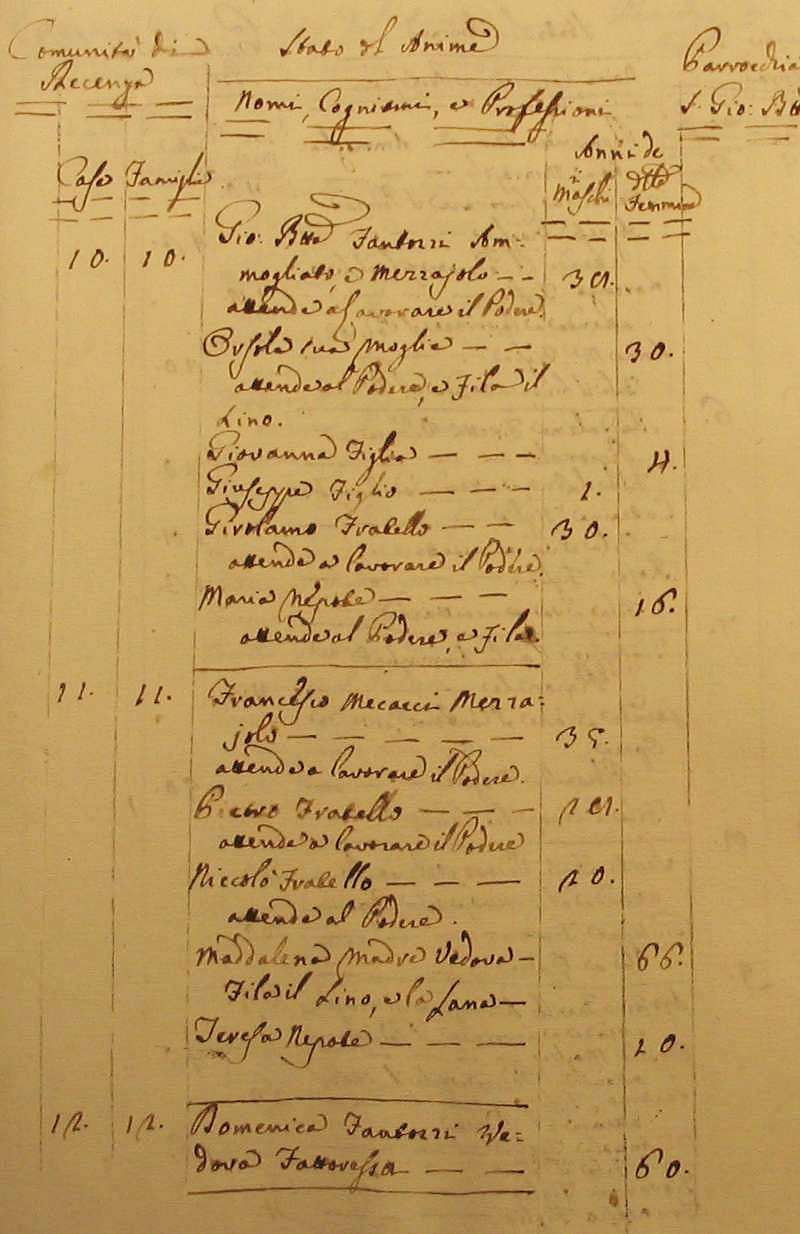 Comunità di
Stato d'Anime
Parrocchia
Nomi, Cogniomi, e Professioni
S. Gio: Bta
Anni de
Case Famiglie
Maschi
dtte
Femmine
10. 10. Gio: Btta Fantozzi Am=
mogliato, e Mezzajolo — —
attende a lavorare il Podere.
Orsola sua Moglie — — 30.
attende al Podere, e Fila il
Lino.
Giovanna Figlia — — — 4.
Giuseppe Figlio — — — 1.
Girolamo Fratello — — 30.
attende a lavorare il Podere.
Maria Nepote — — — 16.
attende al Podere, e Fila.
11. 11. Francesco Mecacci Mezza=
jolo — — — — — 35.
attende a lavorare il Podere.
Pietro Fratello — — —
attende a lavorare il Podere
Niccolò Fratello — — — 20.
attende al Podere.
Maddalena Madre Vedova — 66.
Fila il Lino, e la Lana —
Teresa Nepote — — — 10.
12. 12. Domenica Fantozzi Ve=
dova Fattoressa — — 60.